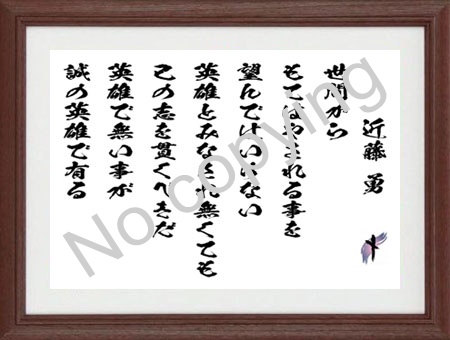 近藤 勇
世間から
もてはやされる事を
望んではいけない
英雄とみなされ無くても
己の志を貫くべきだ
英雄で無い事が
誠の英雄で有る
No copying